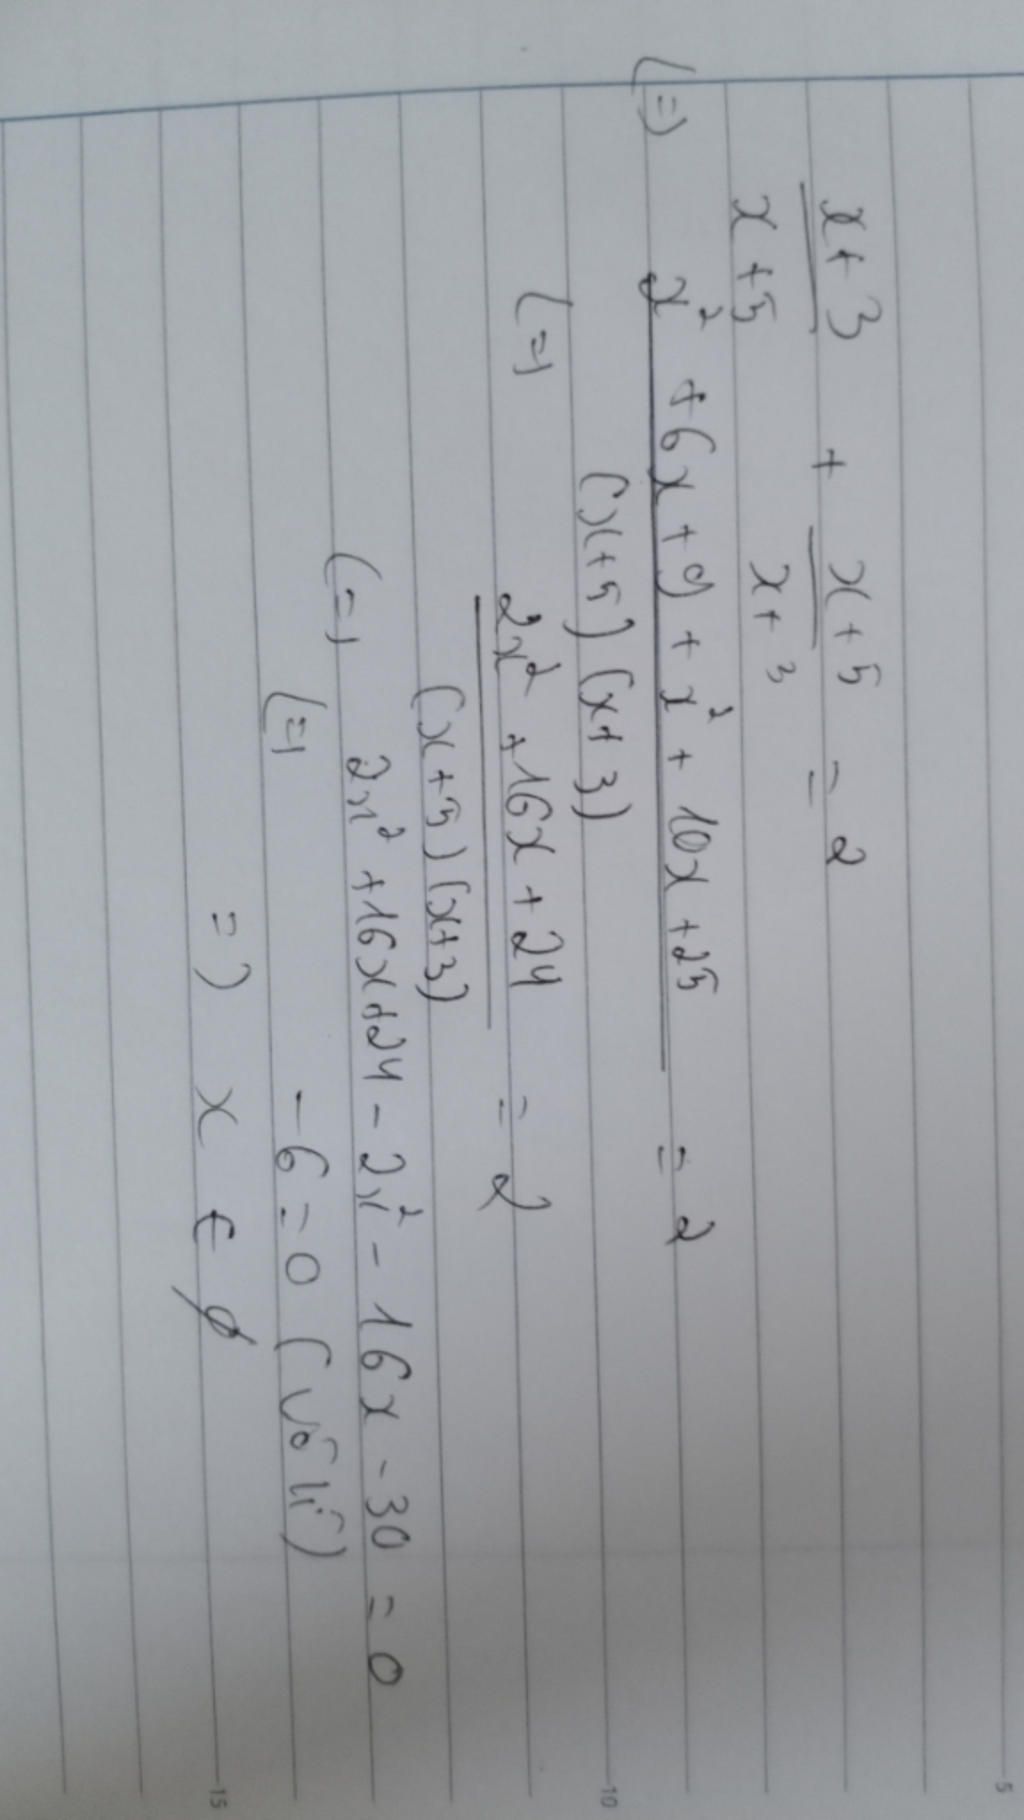 x+3 + x+5 = 2
x+5 x+3
(=) x² + 6x + 9 + x² + 10x + 25 = 2
(x+5) (x+3)
(=) 2x² + 16x + 24 = 2
(x+5) (x+3)
(=) 2x² + 16x + 24 - 2x² - 16x - 30 = 0
(=) -6 = 0 (vô lí)
=) x ∈ ∅
5
10
15